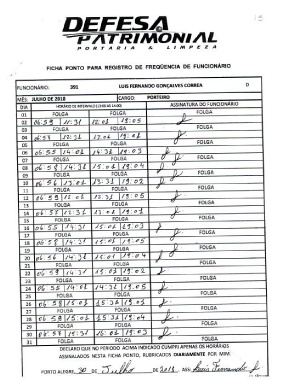 DEFESA
PATRIMONIAL
PORTARIA & LIMPEZA
FICHA PONTO PARA REGISTRO DE FREQÜENCIA DE FUNCIONÁRIO
FUNCIONÁRIO: 391 LUIS FERNANDO GONÇALVES CORREA D
MÊS: JULHO DE 2018 CARGO: PORTEIRO
DIA HORÁRIO DE INTERVALO ASSINATURA DO FUNCIONÁRIO
01 FOLGA FOLGA
02 06:59 11:31 12:01 19:05
03 FOLGA FOLGA
04 06:58 12:31 19:01
05 FOLGA FOLGA
06 06:55 14:01 14:31 19:03
07 FOLGA FOLGA
08 06:58 14:31 15:01 19:04
09 FOLGA FOLGA
10 06:56 13:01 13:31 19:02
11 FOLGA FOLGA
12 06:59 12:31 19:05
13 FOLGA FOLGA
14 12:31 13:01 19:01
15 FOLGA FOLGA
16 06:55 14:31 15:01 19:03
17 FOLGA FOLGA
18 06:58 14:31 15:01 19:05
19 FOLGA FOLGA
20 06:56 14:31 15:01 19:04
21 FOLGA FOLGA
22 06:59 14:31 15:01 19:02
23 FOLGA FOLGA
24 06:55 14:01 14:31 19:01
25 FOLGA FOLGA
26 06:58 15:01 15:31 19:01
27 FOLGA FOLGA
28 06:59 15:01 15:31 19:04
29 FOLGA FOLGA
30 06:58 15:31 16:01 19:03
31 FOLGA FOLGA
DECLARO QUE NO PERÍODO ACIMA INDICADO CUMPRI APENAS OS HORÁRIOS
ASSINALADOS NESTA FICHA PONTO, RUBRICADOS DIARIAMENTE POR MIM.
PORTO ALEGRE, 30 DE Julho DE 2018 Luis Fernando